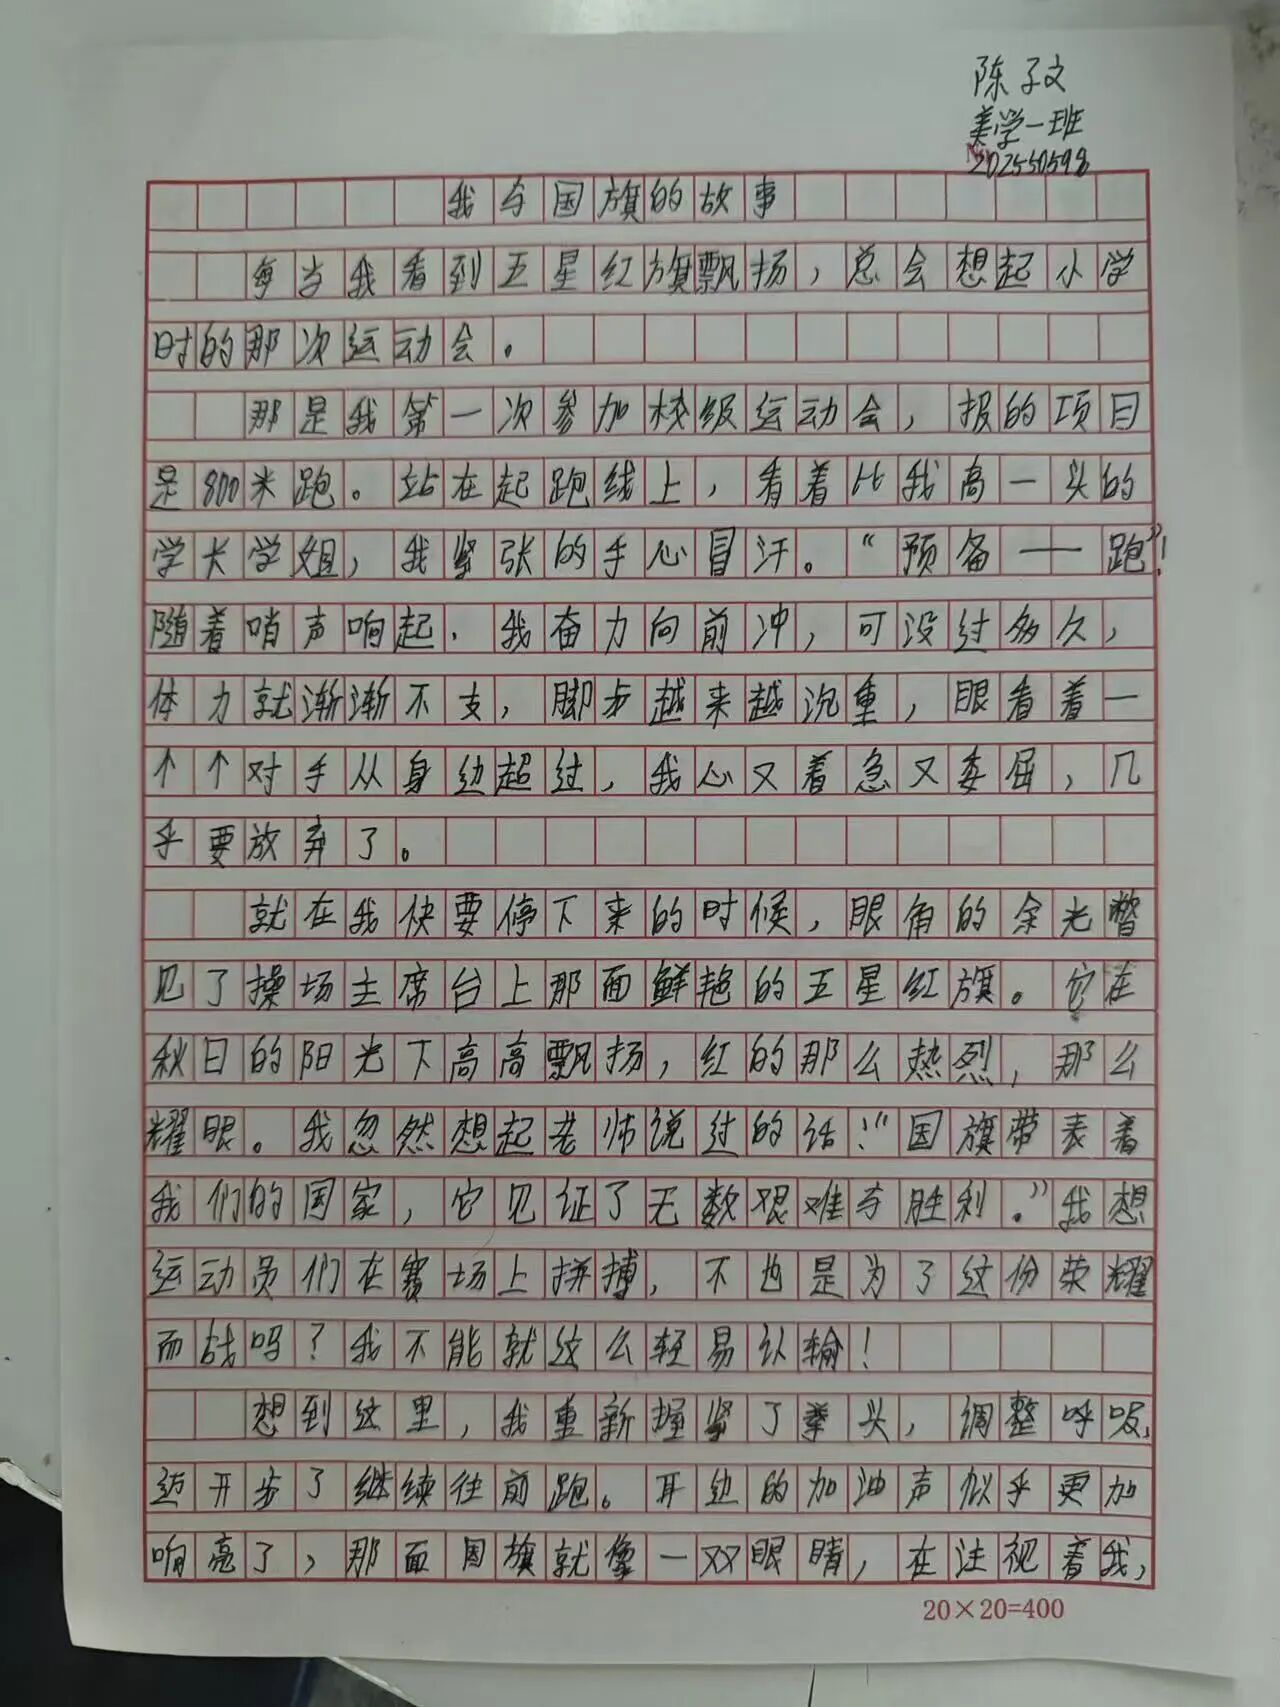 陈子文
美学一班
202550598
我与国旗的故事
每当我看到五星红旗飘扬，总会想起小学
时的那次运动会。
那是我第一次参加校级运动会，报的项目
是800米跑。站在起跑线上，看着比我高一头的
学长学姐，我紧张的手心冒汗。“预备——跑”！
随着哨声响起．我奋力向前冲，可没过多久，
体力就渐渐不支，脚步越来越沉重，眼看着一
个个对手从身边超过，我心又着急又委屈，几
乎要放弃了。
就在我快要停下来的时候，眼角的余光瞥
见了操场主席台上那面鲜艳的五星红旗。它在
秋日的阳光下高高飘扬，红的那么热烈，那么
耀眼。我忽然想起老师说过的话！“国旗带表着
我们的国家，它见证了无数艰难与胜利．”我想
运动员们在赛场上拼搏，不也是为了这份荣耀
而战吗？我不能就这么轻易认输！
想到这里，我重新握紧了拳头，调整呼吸，
迈开步了继续往前跑。耳边的加油声似乎更加
响亮了，那面国旗就像一双眼睛，在注视着我，
20×20=400